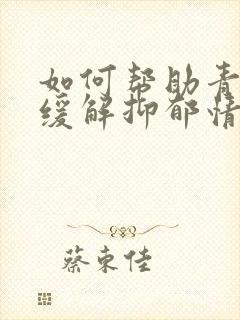 如何帮助青
缓解抑郁情
蔡东佳